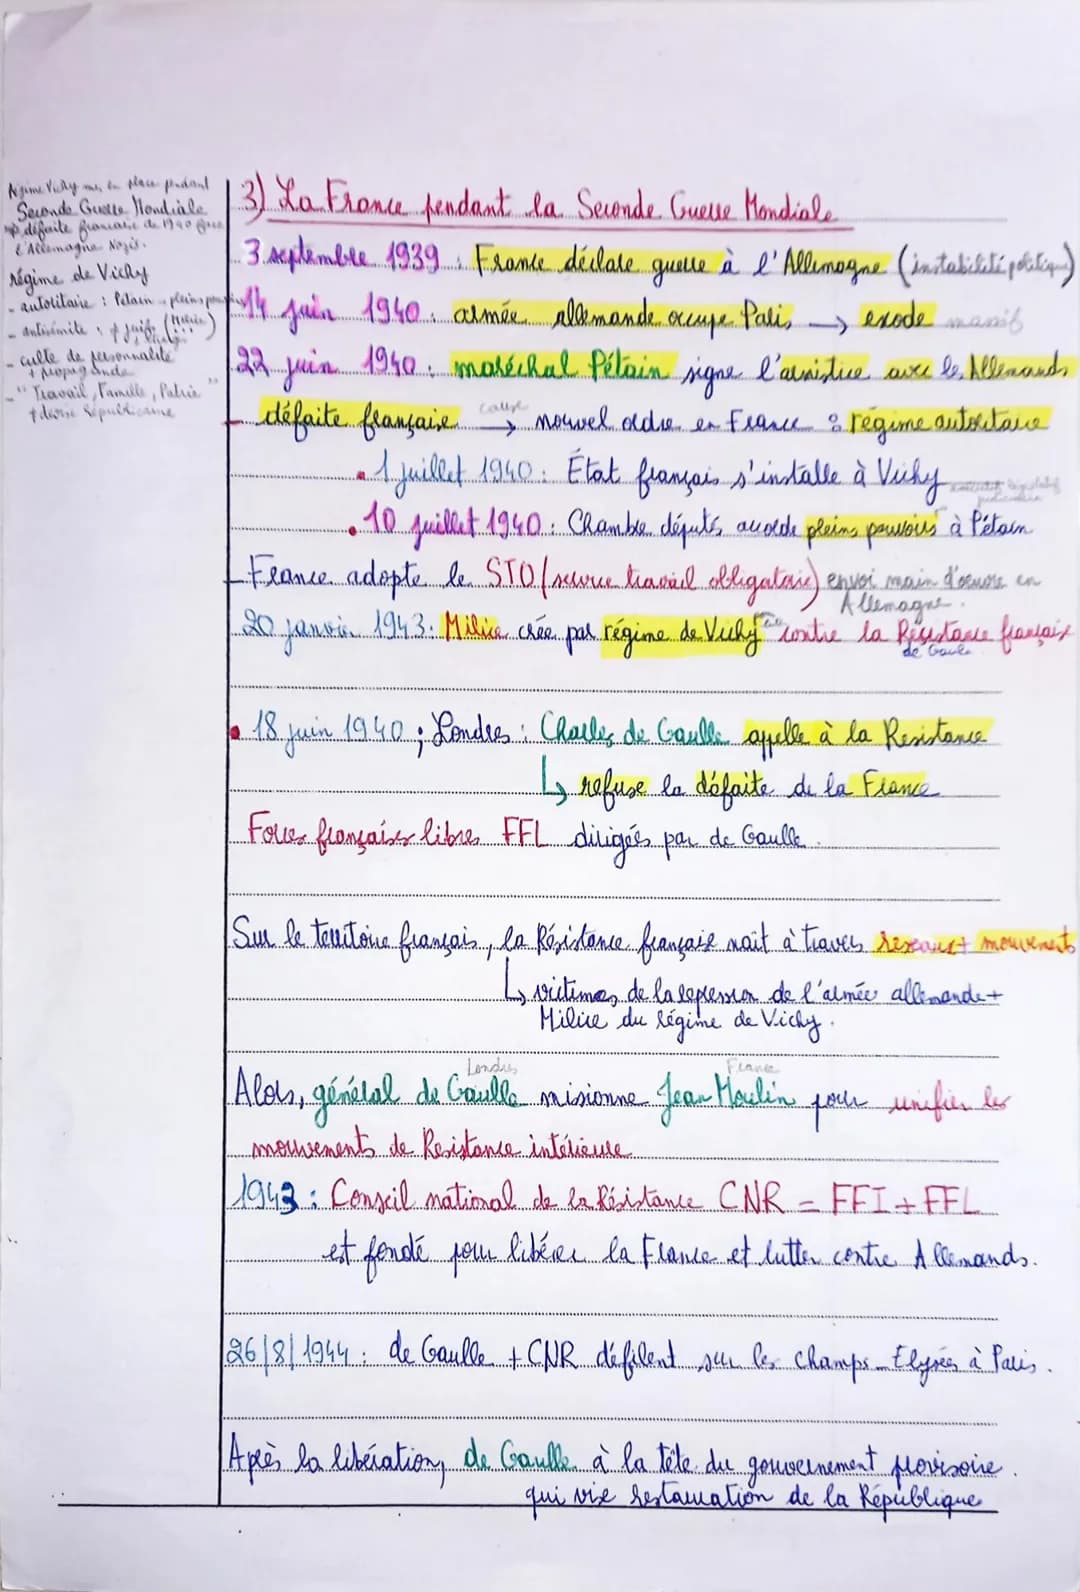 Régime Vichy mis en place pendant
Seconde Guerre Mondiale
défaite française de 1940 face
l'Allemagne Nazis.
régime de Vichy
- autoritaire : Pétain → pleins pouvoirs
- antisémite : ≠ juifs (Milice)
- culte de personnalité
+ propagande
- "Travail, Famille, Patrie"
≠ devise républicaine
3) La France pendant la Seconde Guerre Mondiale
3 septembre 1939 : France déclare guerre à l'Allemagne (instabilité politique)
14 juin 1940 : armée allemande occupe Paris → exode massif
22 juin 1940 : maréchal Pétain signe l'armistice avec le Allemands
- défaite française cause → nouvel ordre en France : régime autoritaire
• 1 juillet 1940 : État français s'installe à Vichy
• 10 juillet 1940 : Chambre députés accorde pleins pouvoirs à Pétain
- France adopte le STO (service travail obligatoire) envoi main d'oeuvre en
Allemagne.
20 janvier 1943 : Milice crée par régime de Vichy contre la Résistance française
de Gaulle
• 18 juin 1940 ; Londres : Charles de Gaulle appelle à la Resistance
↳ refuse la défaite de la France
Forces françaises libres FFL dirigées par de Gaulle.
Sur le territoire français, la Résistance française nait à travers reseaux + mouvements
↳ victimes de la repression de l'armée allemande +
Milice du régime de Vichy.
Londres France
Alors, général de Gaulle misionne Jean Moulin pour unifier les
mouvements de Resistance intérieure
1943 : Conseil national de la Résistance CNR = FFI + FFL
est fondé pour libérer la France et lutter contre Allemands.
26/8/1944 : de Gaulle + CNR défilent sur les champs-Elysées à Paris.
Après la libération, de Gaulle à la tête du gouvernement provisoire.
qui vise restauration de la République